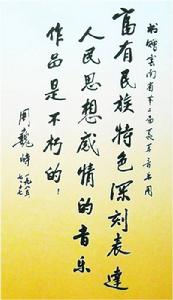 书赠云南省第二届聂耳音乐周
富有民族特色深刻表达
人民思想感情的音乐
作品是不朽的！
周巍峙
一九八八
七、十七